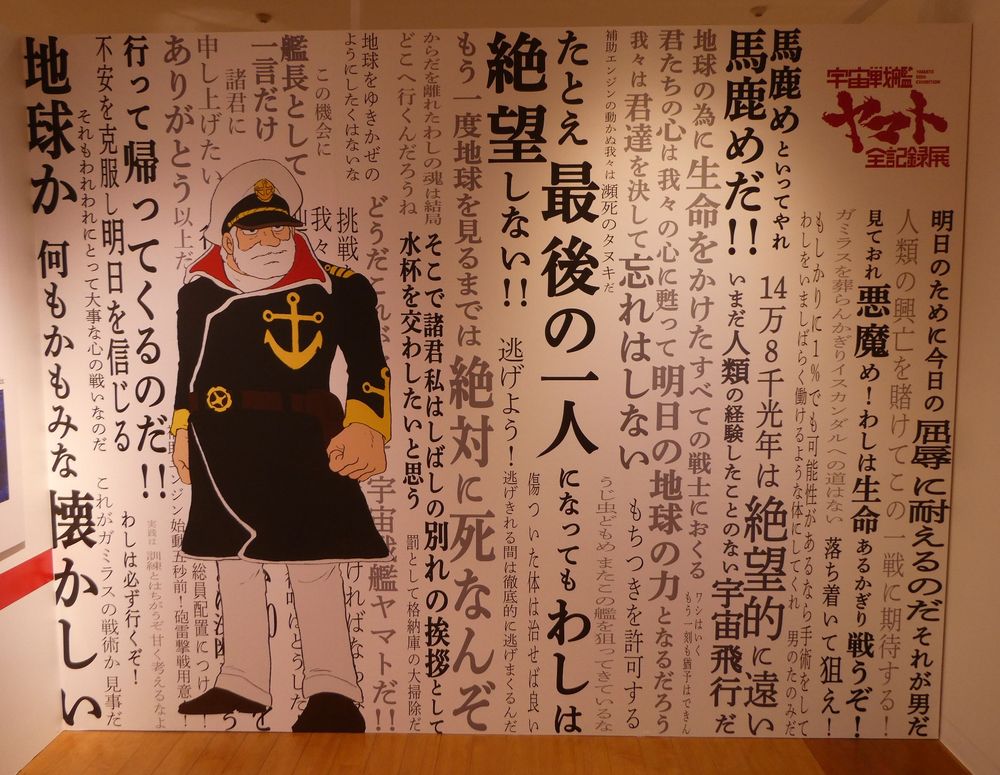 宇宙戦艦
YAMATO
ヤマト
全記録展
明日のために今日の屈辱に耐えるのだそれが男だ
人類の興亡を賭けてこの一戦に期待する!
見ておれ悪魔め!わしは生命あるかぎり戦うぞ!
ガミラスを葬らんかぎりイスカンダルへの道はない 落ち着いて狙え!
もしかりに1%でも可能性があるなら手術をして
わしをいましばらく働けるような体にしてくれ 男のたのみだ
馬鹿めといってやれ 14万8千光年は絶望的に遠い
馬鹿めだ!!いまだ人類の経験したことのない宇宙飛行だ
地球の為に生命をかけたすべての戦士におくる
ワシはいく
もう一刻も猶予はできん
君たちの心は我々の心に甦って明日の地球の力となるだろう
我々は君達を決して忘れはしない もちつきを許可する
補助エンジンの動かぬ我々は瀕死のタヌキだ
うじ虫どもめ またこの艦を狙ってきているな
たとえ最後の一人になってもわしは
絶望しない!!逃げよう!
傷ついた体は治せば良い
逃げきれる間は徹底的に逃げまくるんだ
もう一度地球を見るまでは絶対に死なんぞ
からだを離れたわしの魂は結局
どこへ行くんだろうね
そこで諸君私はしばしの別れの挨拶として
水杯を交わしたいと思う 罰として格納庫の大掃除だ
どうだこれが
宇宙戦艦ヤマトだ!!
地球をゆきかぜの
ようにしたくはないな
挑戦
我々
この機会に
艦長として
一言だけ
諸君に
申し上げたい
ありがとう以上だ
総員配置につけ
エンジン始動五秒前!砲雷撃戦用意
実践は訓練とはちがうぞ甘く考えるなよ
行って帰ってくるのだ!!
わしは必ず行くぞ!
不安を克服し明日を信じる
それもわれわれにとって大事な心の戦いなのだ
これがガミラスの戦術か 見事だ
地球か 何もかもみな懐かしい